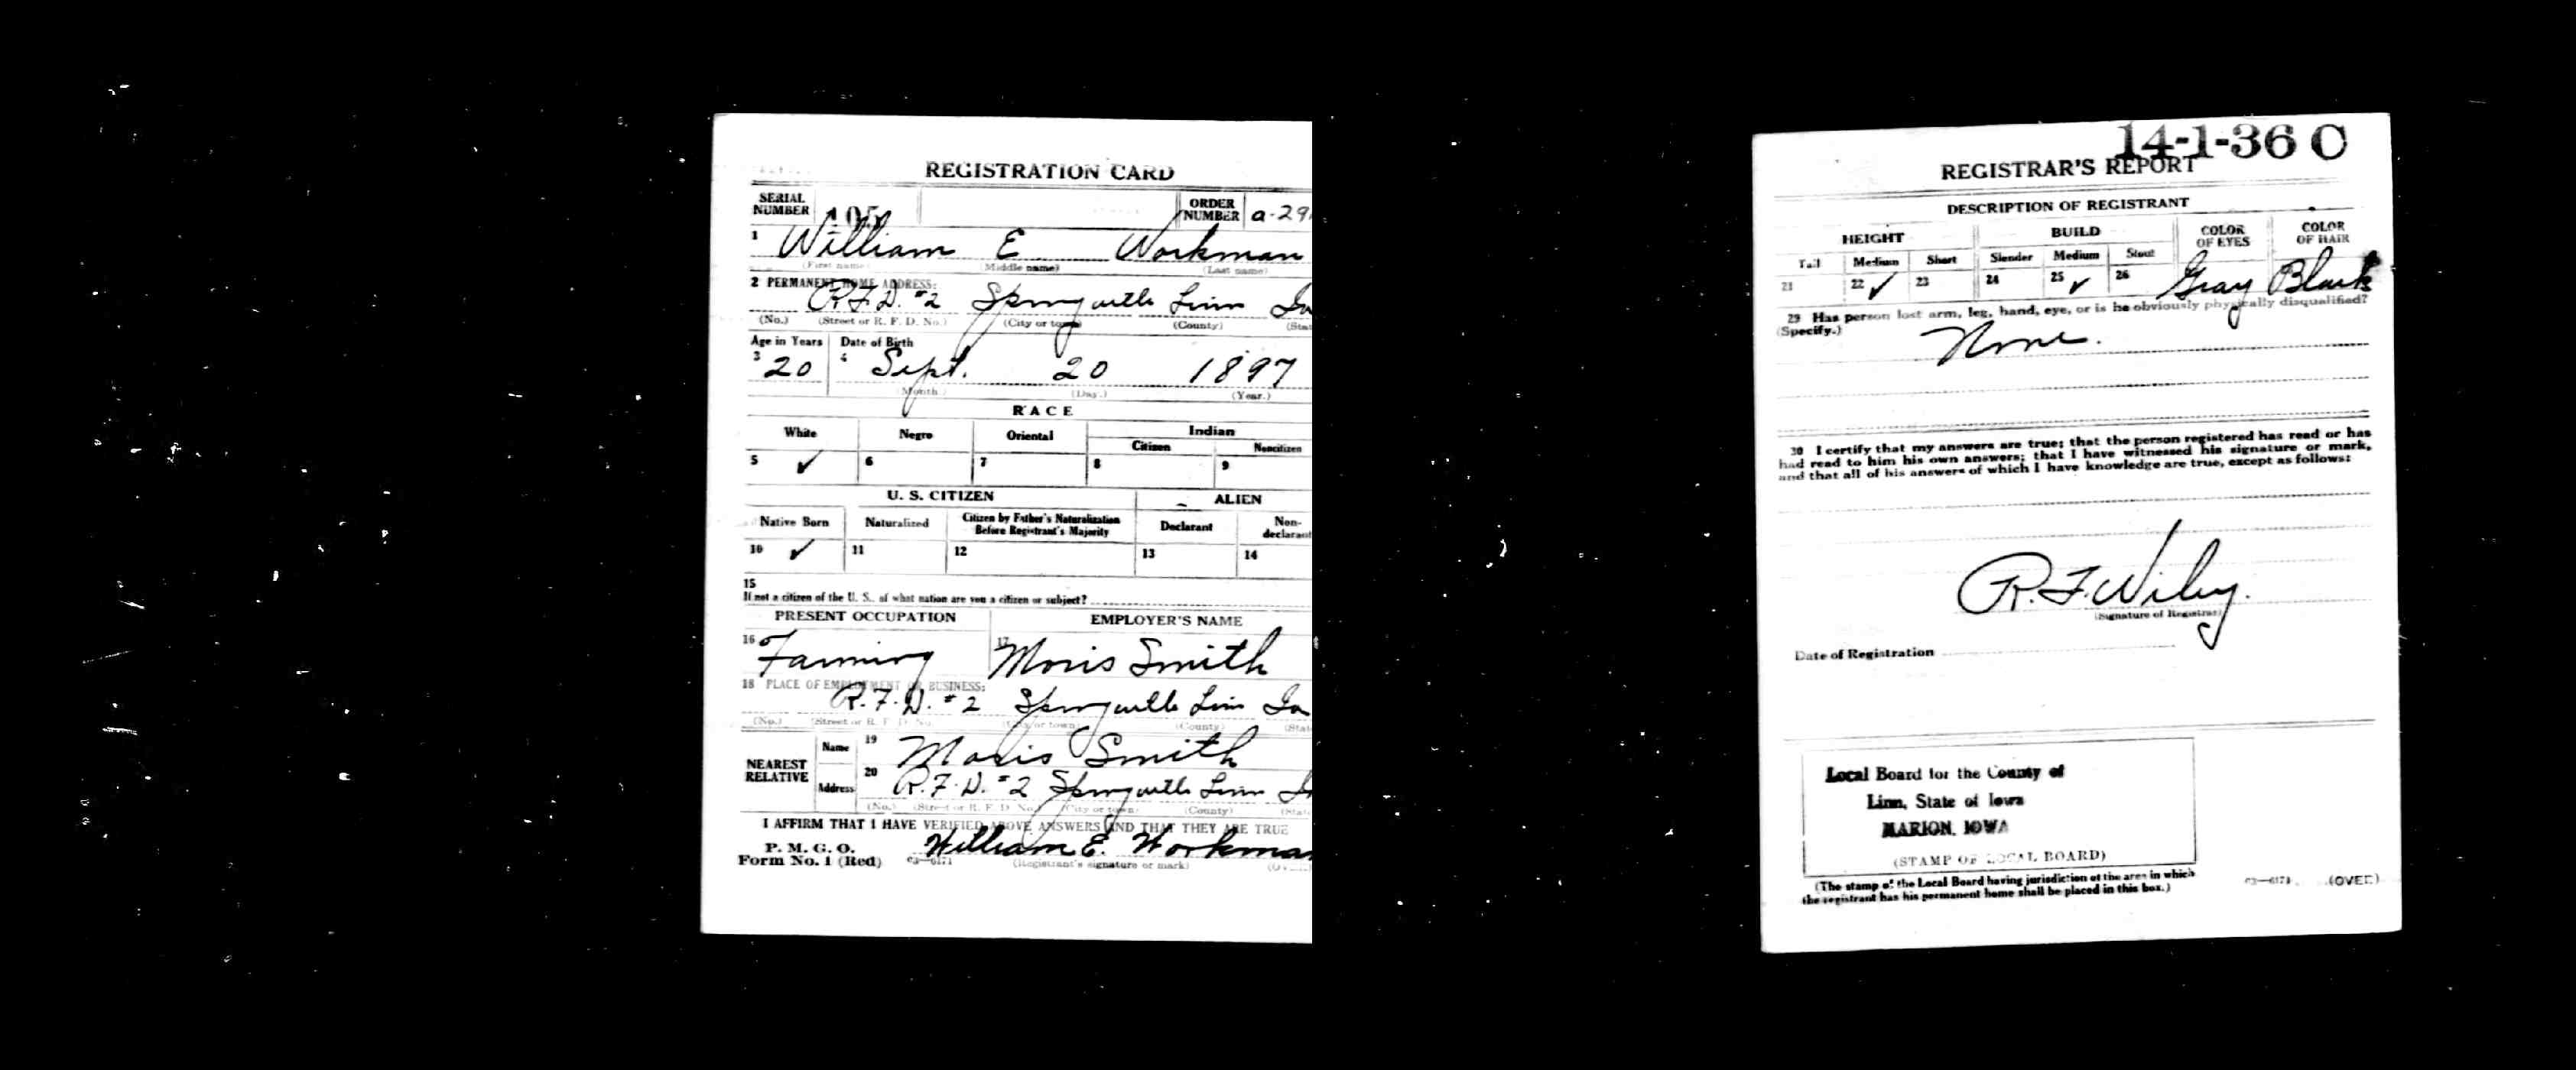 REGISTRATION CARD
SERIAL NUMBER
ORDER NUMBER a-29
1 William E Workman
(First name) (Middle name) (Last name)
2 PERMANENT HOME ADDRESS:
R.F.D. #2 Springville Linn Ia
(No.) (Street or R. F. D. No.) (City or town) (County)
Age in Years Date of Birth
3 20 4 Sept. 20 1897
(Month) (Day.) (Year.)
RACE
White Negro Oriental Indian
Citizen Noncitizen
5 ✓ 6 7 8 9
U. S. CITIZEN ALIEN
Native Born Naturalized Citizen by Father's Naturalization Before Registrant's Majority Declarant Non-declarant
10 ✓ 11 12 13 14
15
If not a citizen of the U. S., of what nation are you a citizen or subject?
PRESENT OCCUPATION EMPLOYER'S NAME
16 Farming 17 Moris Smith
18 PLACE OF EMPLOYMENT OR BUSINESS:
R.F.D. #2 Springville Linn Ia
(No.) (Street or R. F. D. No.) (City or town) (County)
NEAREST RELATIVE
Name 19 Moris Smith
Address 20 R.F.D. #2 Springville Linn
(No.) (Street or R. F. D. No.) (City or town) (County)
I AFFIRM THAT I HAVE VERIFIED ABOVE ANSWERS AND THAT THEY ARE TRUE
P. M. G. O.
Form No. 1 (Red) 03—6171 William E. Workman
(Registrant's signature or mark)
14-1-36 C
REGISTRAR'S REPORT
DESCRIPTION OF REGISTRANT
HEIGHT BUILD COLOR OF EYES COLOR OF HAIR
Tall Medium Short Slender Medium Stout
21 22 ✓ 23 24 25 ✓ 26 Gray Black
29 Has person lost arm, leg, hand, eye, or is he obviously physically disqualified?
(Specify.)
None.
30 I certify that my answers are true; that the person registered has read or has
had read to him his own answers; that I have witnessed his signature or mark,
and that all of his answers of which I have knowledge are true, except as follows:
R.F. Wiley.
(Signature of Registrar)
Date of Registration
Local Board for the County of
Linn, State of Iowa
MARION, IOWA
(STAMP OF LOCAL BOARD)
(The stamp of the Local Board having jurisdiction of the area in which
the registrant has his permanent home shall be placed in this box.)
03—6171 (OVER)